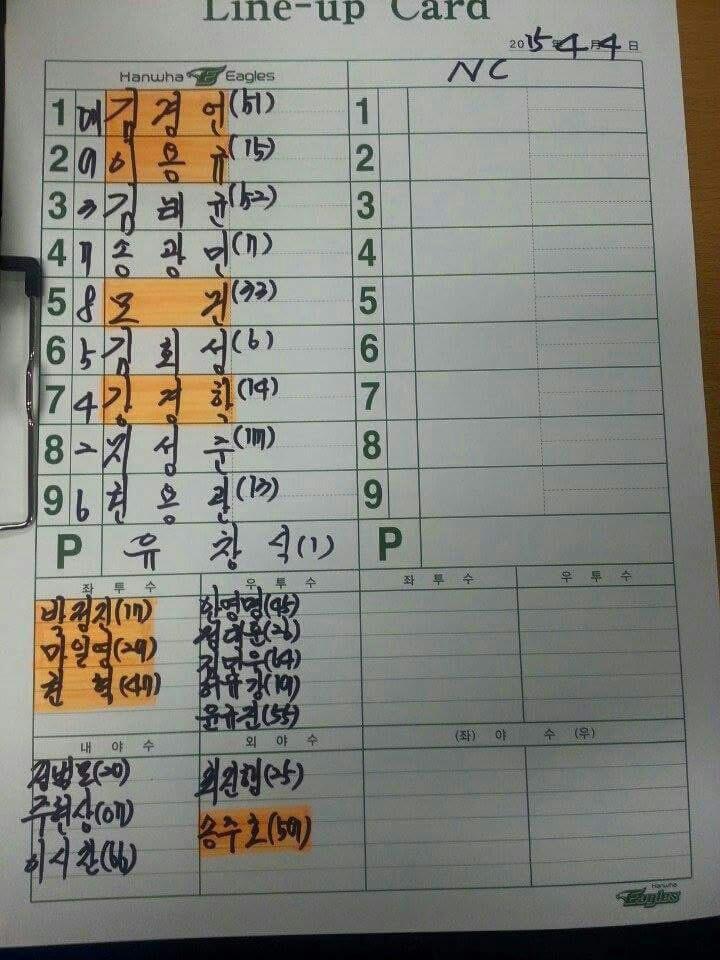 Line-up Card
2015年 4月 4日
Hanwha Eagles
NC
1 DH 김경언 (51)
2 9 이용규 (15)
3 3 김태균 (52)
4 7 송광민 (7)
5 8 모건 (33)
6 5 김회성 (6)
7 4 강경학 (14)
8 2 지성준 (117)
9 6 권용관 (13)
P 유창식 (1)
1
2
3
4
5
6
7
8
9
P
좌투수
박정진 (17)
마일영 (29)
권혁 (47)
우투수
안영명 (45)
정대훈 (26)
김민우 (64)
허유강 (19)
윤규진 (55)
좌투수
우투수
내야수
정범모 (20)
주현상 (07)
이시찬 (66)
외야수
최진행 (25)
송주호 (507)
(좌) 야수 (우)
Hanwha Eagles